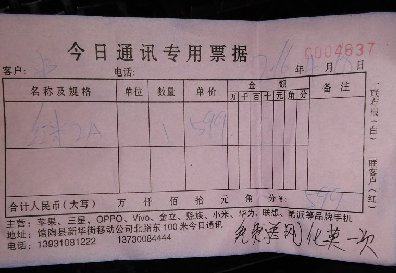 今日通讯专用票据
0004637
客户： 电话： 年 月 日
名称及规格 单位 数量 单价 金额 备注
万 千 百 十 元 角 分
红米2A 1 599
合计人民币（大写） 万 仟 佰 拾 元 角 分 599
主营：苹果、三星、OPPO、Vivo、金立、魅族、小米、华为、联想、酷派等品牌手机
地址：馆陶县新华街移动公司北路东100米今日通讯
电话：13931081222 13730084444
免费 一次